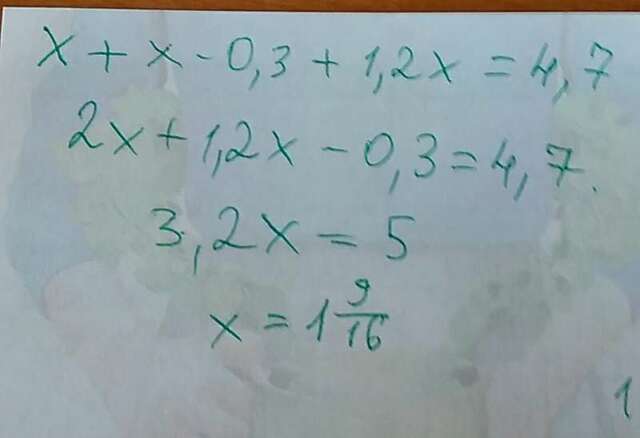 x + x - 0,3 + 1,2x = 4,7
2x + 1,2x - 0,3 = 4,7.
3,2x = 5
x = 1 9/16
1